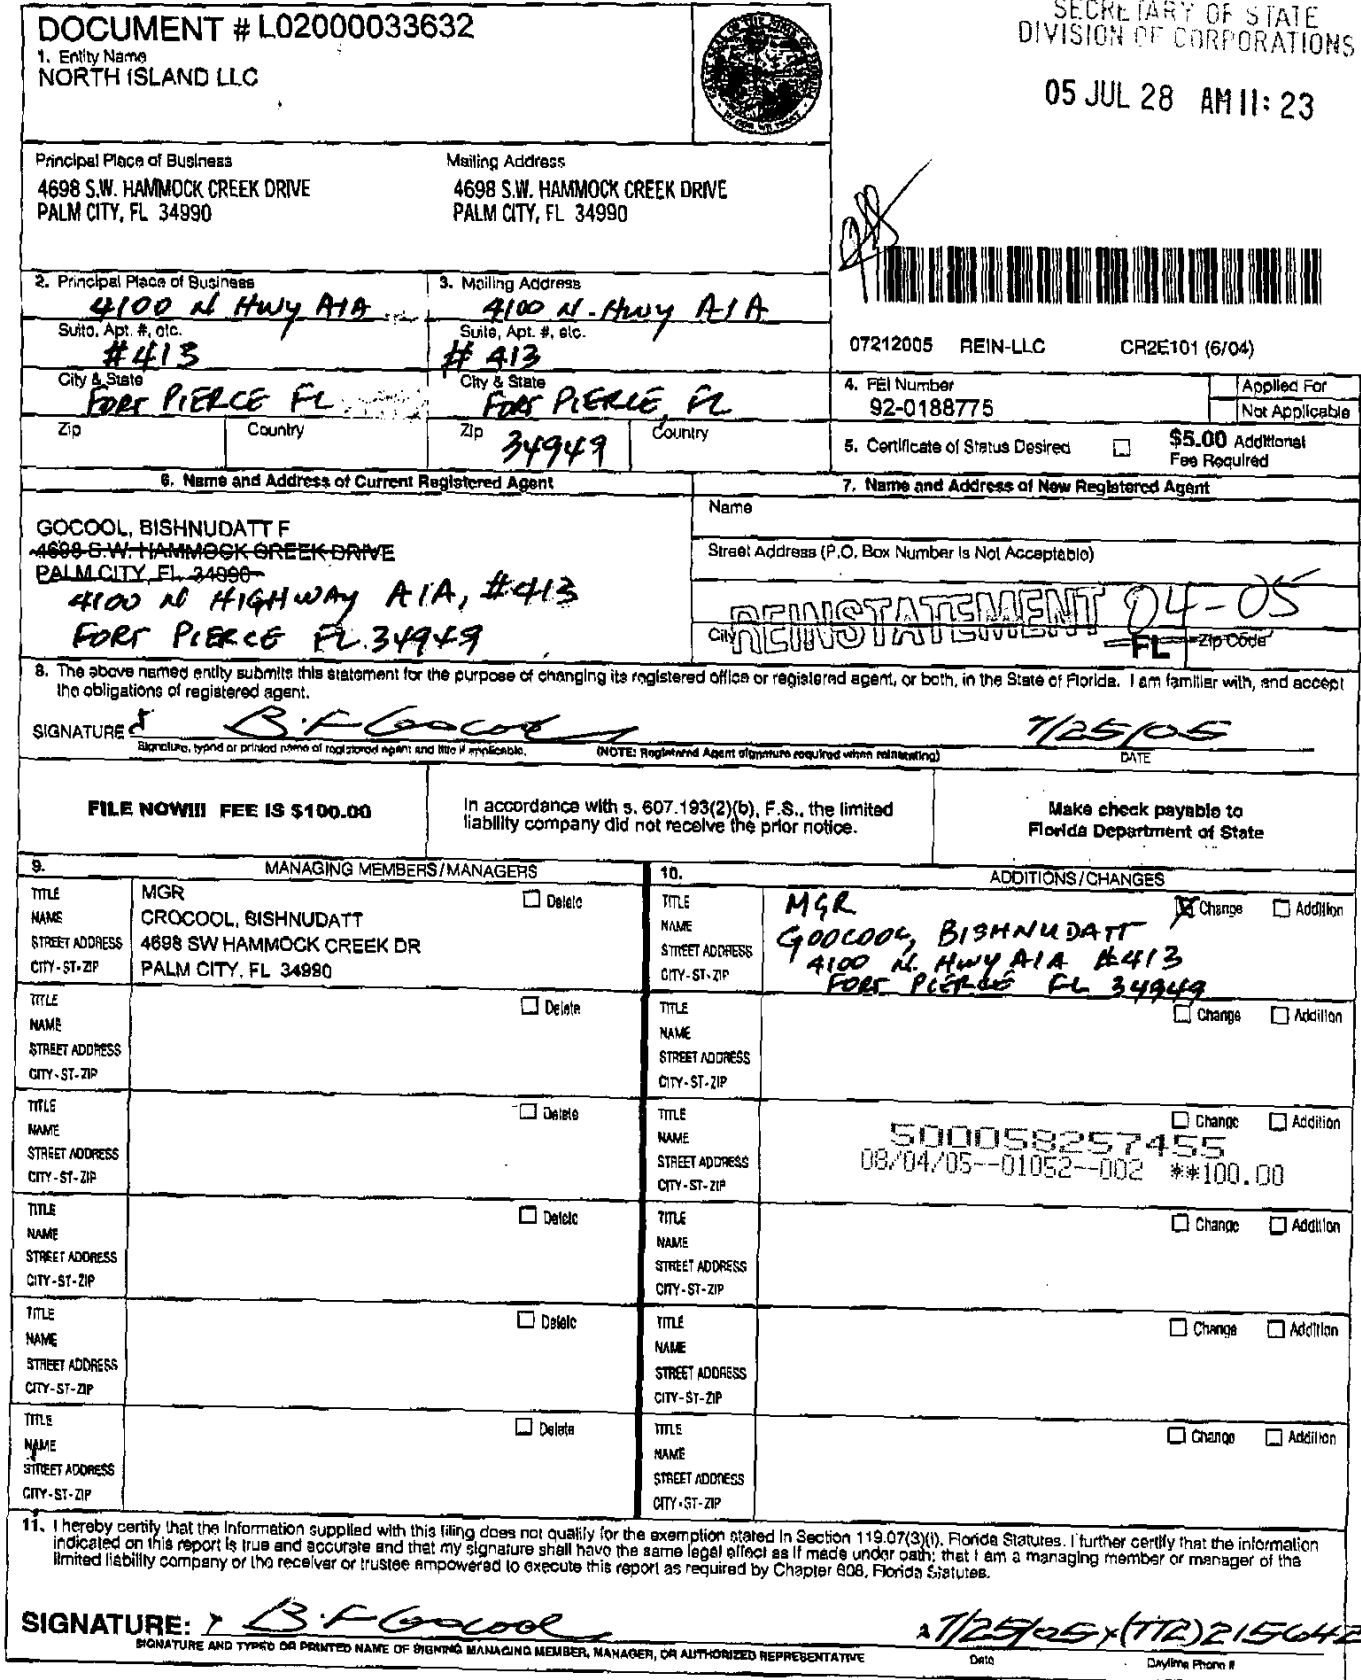 DOCUMENT # L02000033632
1. Entity Name
NORTH ISLAND LLC
SECRETARY OF STATE
DIVISION OF CORPORATIONS
05 JUL 28 AM 11: 23
Principal Place of Business
4698 S.W. HAMMOCK CREEK DRIVE
PALM CITY, FL 34990
Mailing Address
4698 S.W. HAMMOCK CREEK DRIVE
PALM CITY, FL 34990
2. Principal Place of Business
4100 N HWY A1A
Suite, Apt. #, etc.
#413
City & State
FORT PIERCE FL
Zip
Country
3. Mailing Address
4100 N. Hwy A1A
Suite, Apt. #, etc.
# 413
City & State
FORT PIERCE, FL
Zip
34949
Country
07212005 REIN-LLC CR2E101 (6/04)
4. FEI Number
92-0188775
Applied For
Not Applicable
5. Certificate of Status Desired
$5.00 Additional
Fee Required
6. Name and Address of Current Registered Agent
GOCOOL, BISHNUDATT F
4698 S.W. HAMMOCK CREEK DRIVE
PALM CITY, FL 34990
4100 N HIGHWAY A1A, #413
FORT PIERCE FL. 34949
7. Name and Address of New Registered Agent
Name
Street Address (P.O. Box Number Is Not Acceptable)
REINSTATEMENT 04-05
City
FL
Zip Code
8. The above named entity submits this statement for the purpose of changing its registered office or registered agent, or both, in the State of Florida. I am familiar with, and accept
the obligations of registered agent.
SIGNATURE B.F Gocool 7/25/05
Signature, typed or printed name of registered agent and title if applicable.
(NOTE: Registered Agent signature required when reinstating)
DATE
FILE NOW!!! FEE IS $100.00
In accordance with s. 607.193(2)(b), F.S., the limited
liability company did not receive the prior notice.
Make check payable to
Florida Department of State
9. MANAGING MEMBERS/MANAGERS
TITLE MGR Delete
NAME CROCOOL, BISHNUDATT
STREET ADDRESS 4698 SW HAMMOCK CREEK DR
CITY-ST-ZIP PALM CITY, FL 34990
TITLE Delete
NAME
STREET ADDRESS
CITY-ST-ZIP
TITLE Delete
NAME
STREET ADDRESS
CITY-ST-ZIP
TITLE Delete
NAME
STREET ADDRESS
CITY-ST-ZIP
TITLE Delete
NAME
STREET ADDRESS
CITY-ST-ZIP
TITLE Delete
NAME
STREET ADDRESS
CITY-ST-ZIP
10. ADDITIONS/CHANGES
TITLE MGR Change Addition
NAME GOOCOOL, BISHNUDATT
STREET ADDRESS 4100 N. HWY A1A #413
CITY-ST-ZIP FORT PIERCE FL 34949
TITLE Change Addition
NAME
STREET ADDRESS
CITY-ST-ZIP
TITLE Change Addition
NAME 500058257455
STREET ADDRESS 08/04/05--01052--002 **100.00
CITY-ST-ZIP
TITLE Change Addition
NAME
STREET ADDRESS
CITY-ST-ZIP
TITLE Change Addition
NAME
STREET ADDRESS
CITY-ST-ZIP
TITLE Change Addition
NAME
STREET ADDRESS
CITY-ST-ZIP
11. I hereby certify that the information supplied with this filing does not qualify for the exemption stated in Section 119.07(3)(i), Florida Statutes. I further certify that the information
indicated on this report is true and accurate and that my signature shall have the same legal effect as if made under oath; that I am a managing member or manager of the
limited liability company or the receiver or trustee empowered to execute this report as required by Chapter 608, Florida Statutes.
SIGNATURE: B.F Gocool 7/25/05 (772) 215642
SIGNATURE AND TYPED OR PRINTED NAME OF SIGNING MANAGING MEMBER, MANAGER, OR AUTHORIZED REPRESENTATIVE
Date
Daytime Phone #